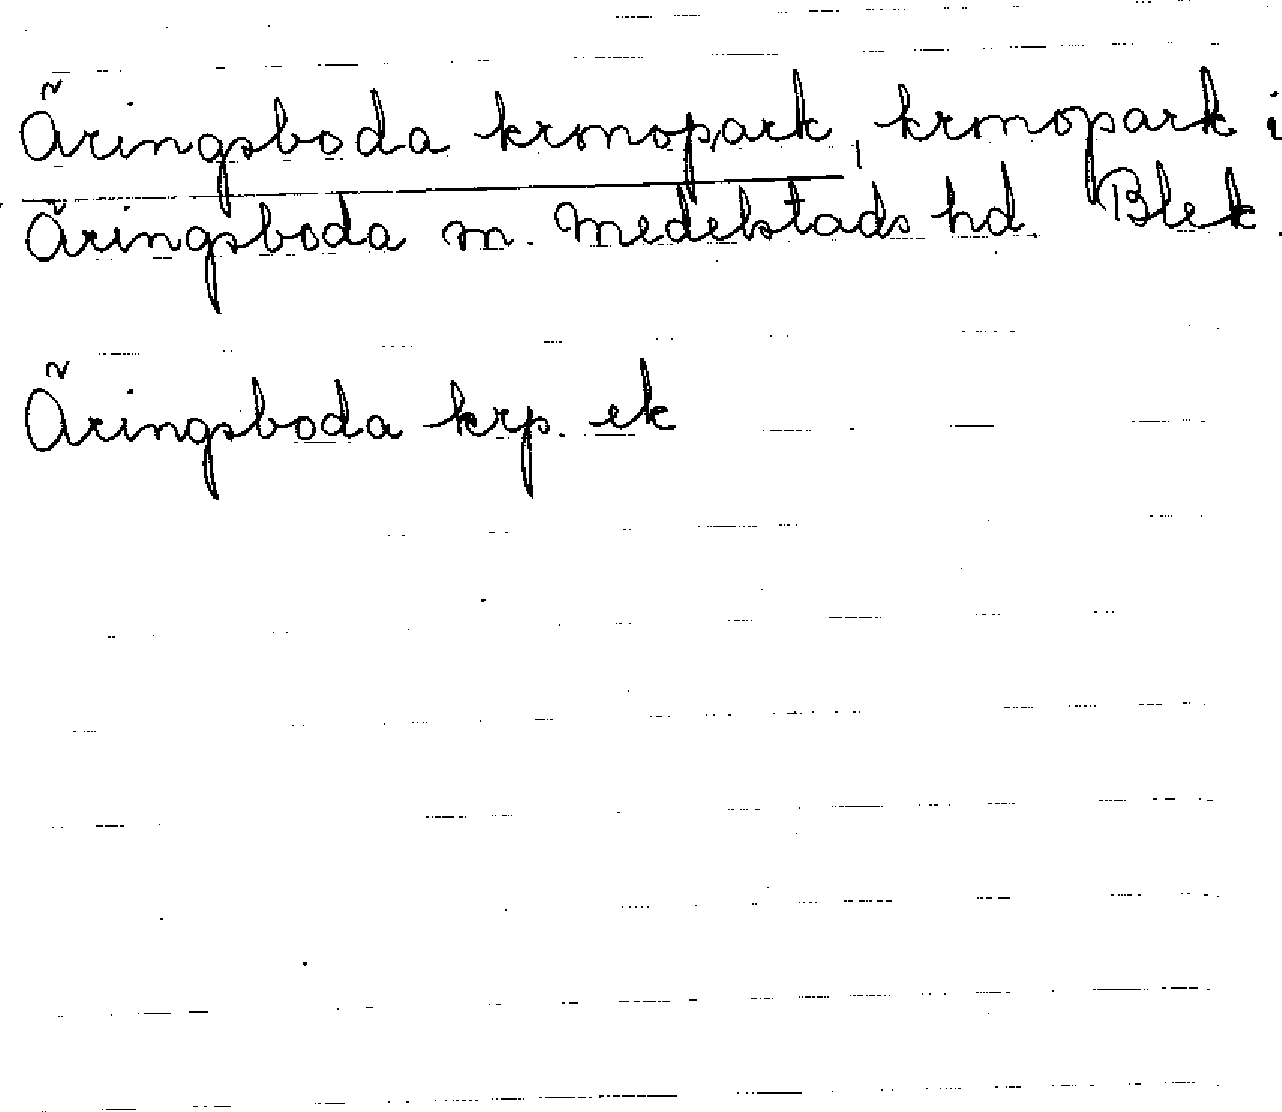 Äringsboda kronopark, kronopark i
Äringsboda m. Medelstads hd. Blek.
Äringsboda krp. ek